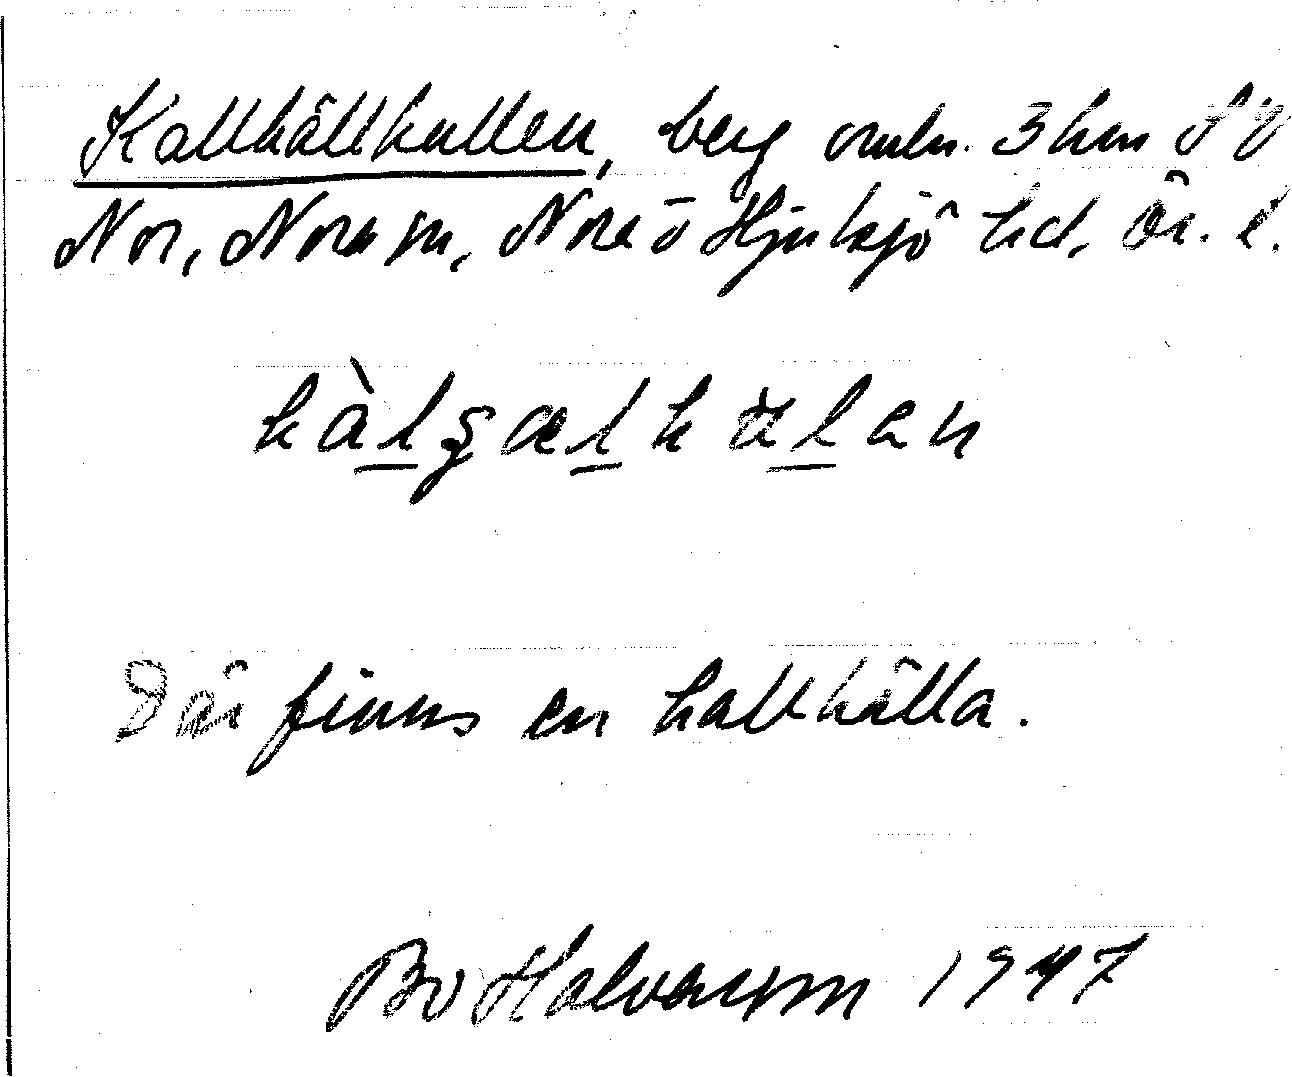 Kallkällkullen, berg omkr. 3 km SV
Nor, Nora sn, Nora o Hjulsjö hd, Ör. l.
Där finns en kallkälla.
Bo Halvarson 1947